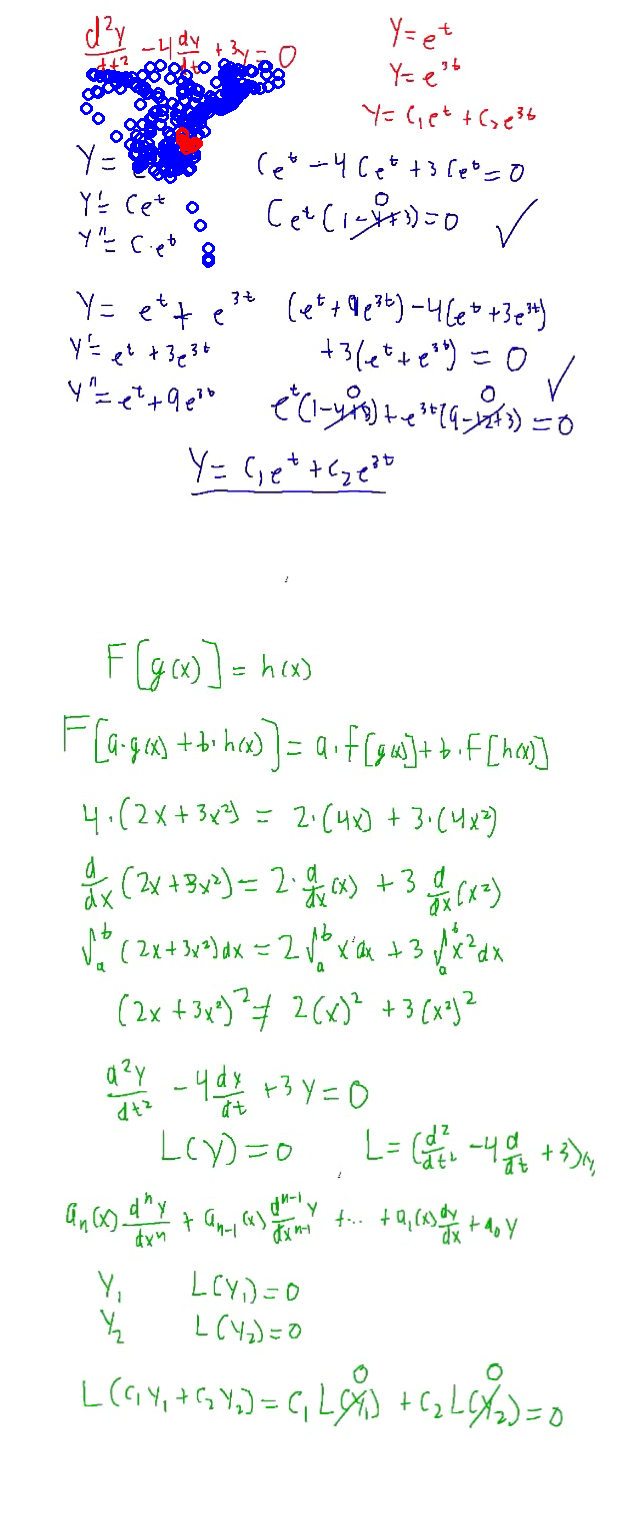 d²y/dt² - 4 dy/dt + 3y = 0
Y = e^t
Y = e^3t
Y = C₁e^t + C₂e^3t
Y =
Y' = Ce^t
Y'' = C·e^t
Ce^t - 4Ce^t + 3Ce^t = 0
Ce^t(1-4+3) = 0 ✓
0
Y = e^t + e^3t
Y' = e^t + 3e^3t
Y'' = e^t + 9e^3t
(e^t + 9e^3t) - 4(e^t + 3e^3t)
+3(e^t + e^3t) = 0 ✓
0 0
e^t(1-4+3) + e^3t(9-12+3) = 0
Y = C₁e^t + C₂e^3t
F[g(x)] = h(x)
F[a·g(x) + b·h(x)] = a·F[g(x)] + b·F[h(x)]
4·(2x + 3x²) = 2·(4x) + 3·(4x²)
d/dx (2x + 3x²) = 2·d/dx (x) + 3 d/dx (x²)
∫ₐᵇ (2x + 3x²)dx = 2∫ₐᵇ x dx + 3∫ₐᵇ x² dx
(2x + 3x²)² ≠ 2(x)² + 3(x²)²
d²y/dt² - 4 dy/dt + 3y = 0
L(y) = 0 L = (d²/dt² - 4 d/dt + 3)y
aₙ(x) dⁿy/dxⁿ + aₙ₋₁(x) dⁿ⁻¹y/dxⁿ⁻¹ + ... + a₁(x) dy/dx + a₀y
Y₁ L(Y₁) = 0
Y₂ L(Y₂) = 0
0 0
L(C₁Y₁ + C₂Y₂) = C₁L(Y₁) + C₂L(Y₂) = 0